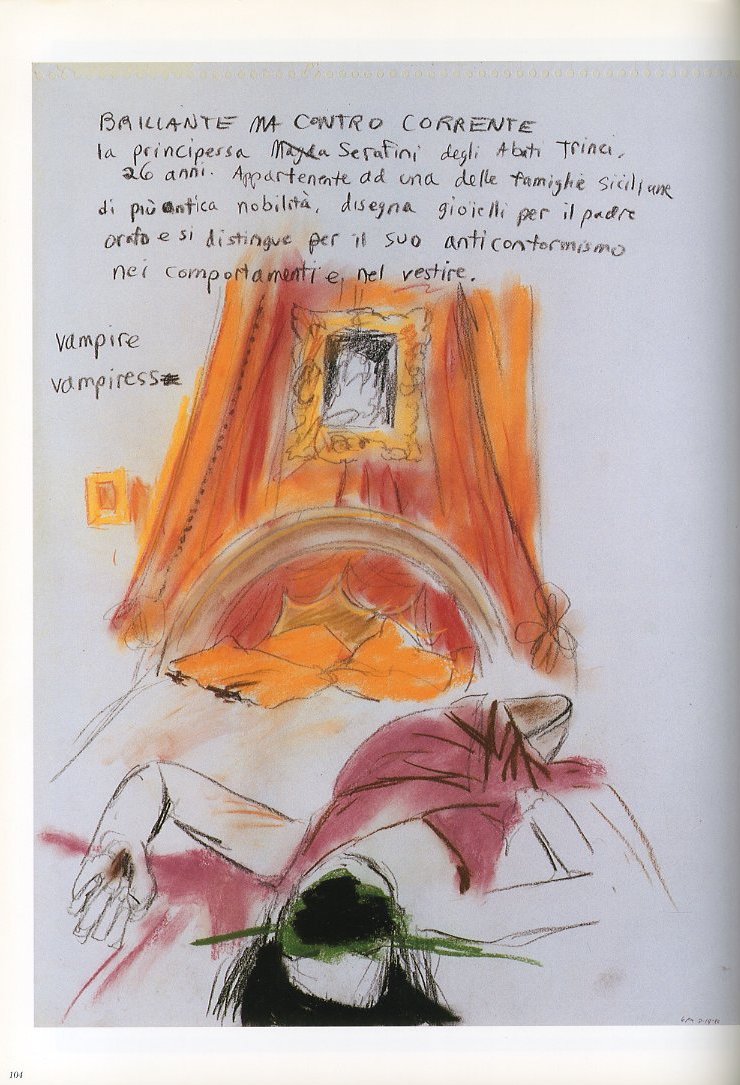 BRILLANTE MA CONTRO CORRENTE
la principessa Magda Serafini degli Abati Trinci,
26 anni. Appartenente ad una delle famiglie siciliane
di più antica nobilità, disegna gioielli per il padre
orafo e si distingue per il suo anticonformismo
nei comportamenti e nel vestire.
vampire
vampiress
104